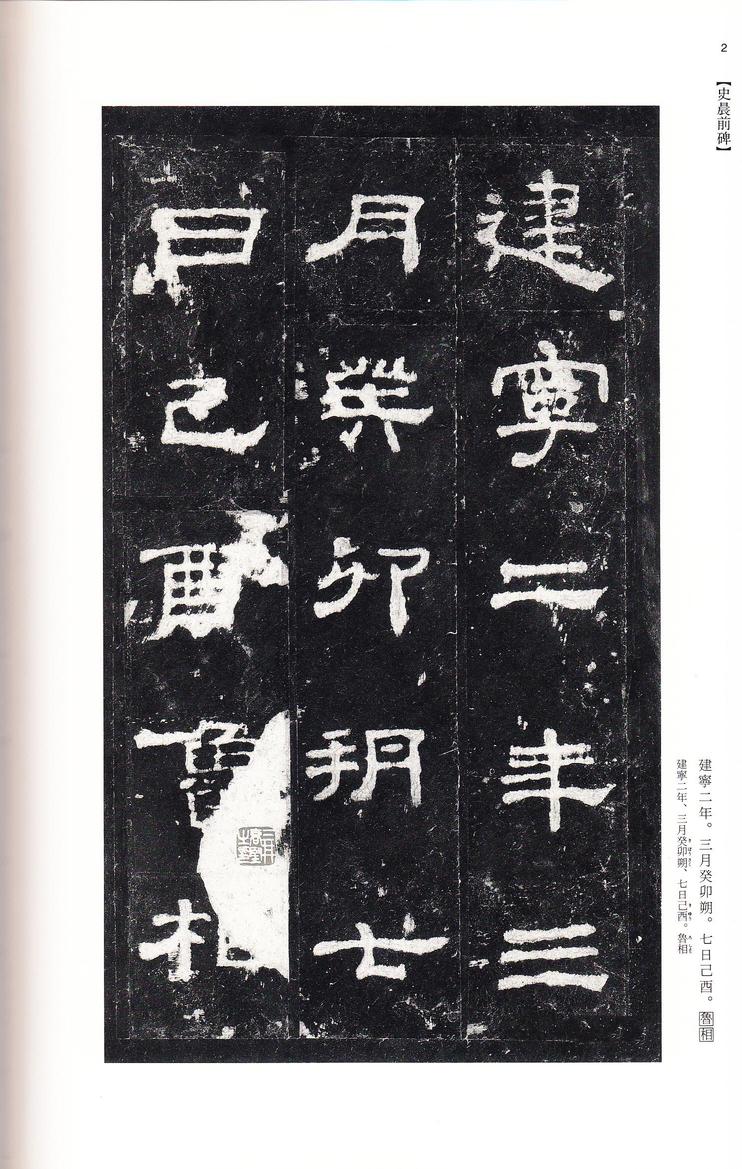 2
【史晨前碑】
建寧二年三
月癸卯朔七
日己酉魯相
建寧二年。三月癸卯朔。七日己酉。魯相
建寧二年、三月癸卯朔、七日己酉。魯相